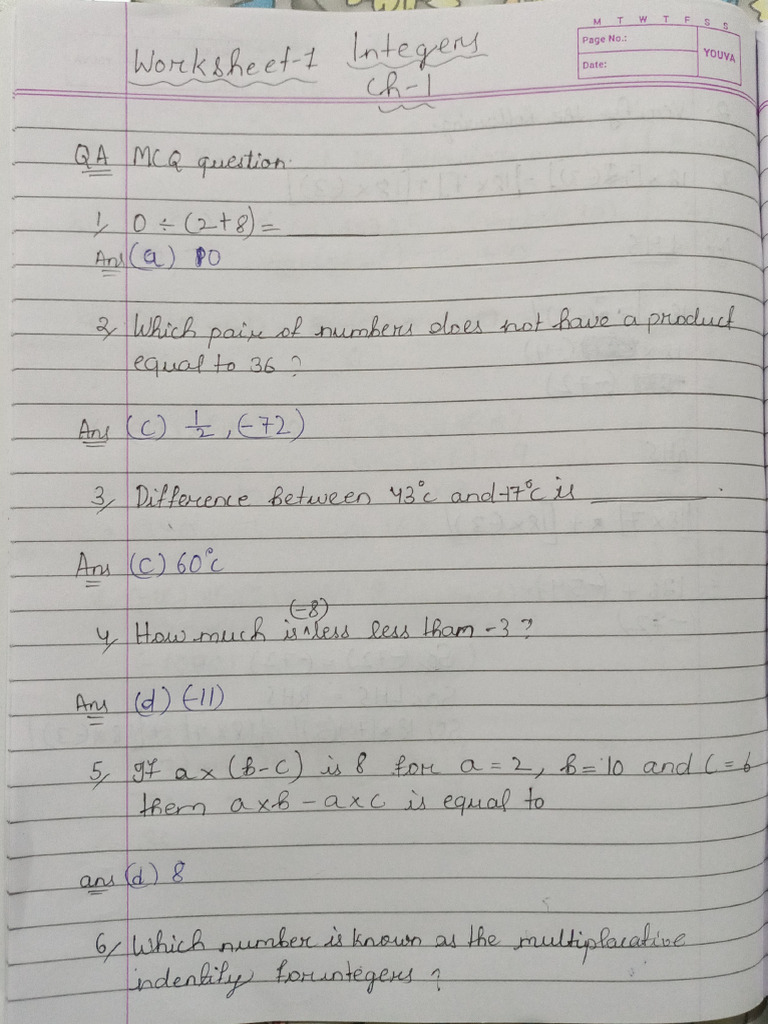 M T W T F S S
Page No.:
Date:
YOUVA
Worksheet-1 Integers
Ch-1
QA MCQ question.
1, 0 ÷ (2+8) = ______
Ans (a) 0
2, Which pair of numbers does not have a product
equal to 36 ?
Ans (C) 1/2, (-72)
3, Difference between 43°c and -17°c is ______.
Ans (C) 60°c
(-8)
4, How much is ^ less less than -3 ?
Ans (d) (-11)
5, If a × (b-c) is 8 for a = 2, b = 10 and c = 6
then a×b - a×c is equal to
ans (d) 8
6, Which number is known as the multiplacative
indentify for integers ?